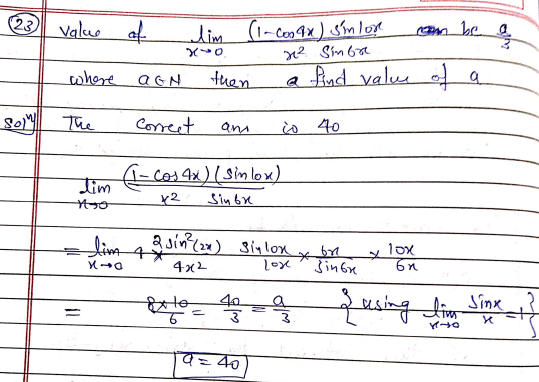 (23) value of lim x→0 (1-cos4x) sin10x / x² sin6x can be a/3
where a∈N then a find value of a
Solⁿ The correct ans is 40
lim x→0 (1-cos4x)(sin10x) / x² sin6x
= lim x→0 4 × 2sin²(2x) / 4x² sin10x / 10x × 6x / sin6x × 10x / 6x
= 8×10 / 6 = 40/3 = a/3 { using lim x→0 sinx/x = 1 }
a = 40